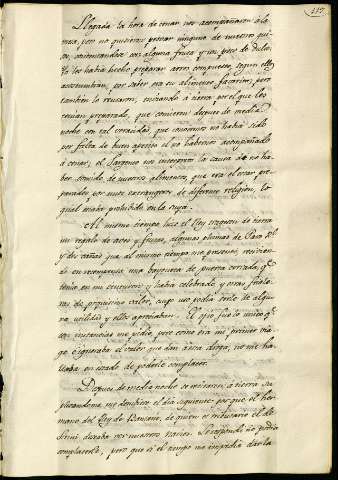 117
Llegada la hora de cenar nos acompañaron á la
mesa, pero no quisieron probar ninguno de nuestros gui-
sos, contentandose con alguna fruta y un poco de dulce.
Yo les habia hecho preparar arroz compuesto, segun ellos
acostumbran, por saber era su alimento favorito; pero
tambien lo reusaron, enviando á tierra por el que les
tenian preparado, que comieron despues de media
noche con tal voracidad que conocimos no habia sido
por falta de buen apetito el no habernos acompañado
á cenar; el Sargento nos interpretó la causa de no ha-
ber comido de nuestros alimentos, que era el estar pre-
parados por unos extrangeros de diferente religion, lo
qual estaba prohibido en la suya.
Al mismo tiempo hizo el Rey traxesen de tierra
un regalo de aves y frutas, algunas plumas de
y dos cañas que al mismo tiempo me presentó, recivien-
do en recompensa una bayoneta de puerta cerrada, q.e
tenia en mi y habia celebrado, y otras friole-
ras de poquisimo valor, cuyo uso podia serle de algu-
na utilidad y ellos apreciaban. El opio fue lo unico q.e
con instancias me pidió, pero como era mi primer via-
ge é ignoraba el valor que dan á esta droga, no me ha-
llaba en estado de poderle complacer.
Despues de media noche se retiraron á tierra su-
plicandome me detubiese el dia siguiente por que el her-
mano del Rey de de quien es tributario el de
deseaba ver nuestros navios. Le respondi no podia
complacerle, pero que si el tiempo me impedia dar la